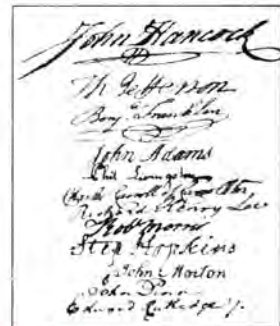 John Hancock
Th Jefferson
Benj. Franklin
John Adams
Phil. Livingston
Charles Carroll of Carrollton
Richard Henry Lee
Robt Morris
Step Hopkins
John Morton
John Penn
Edward Rutledge